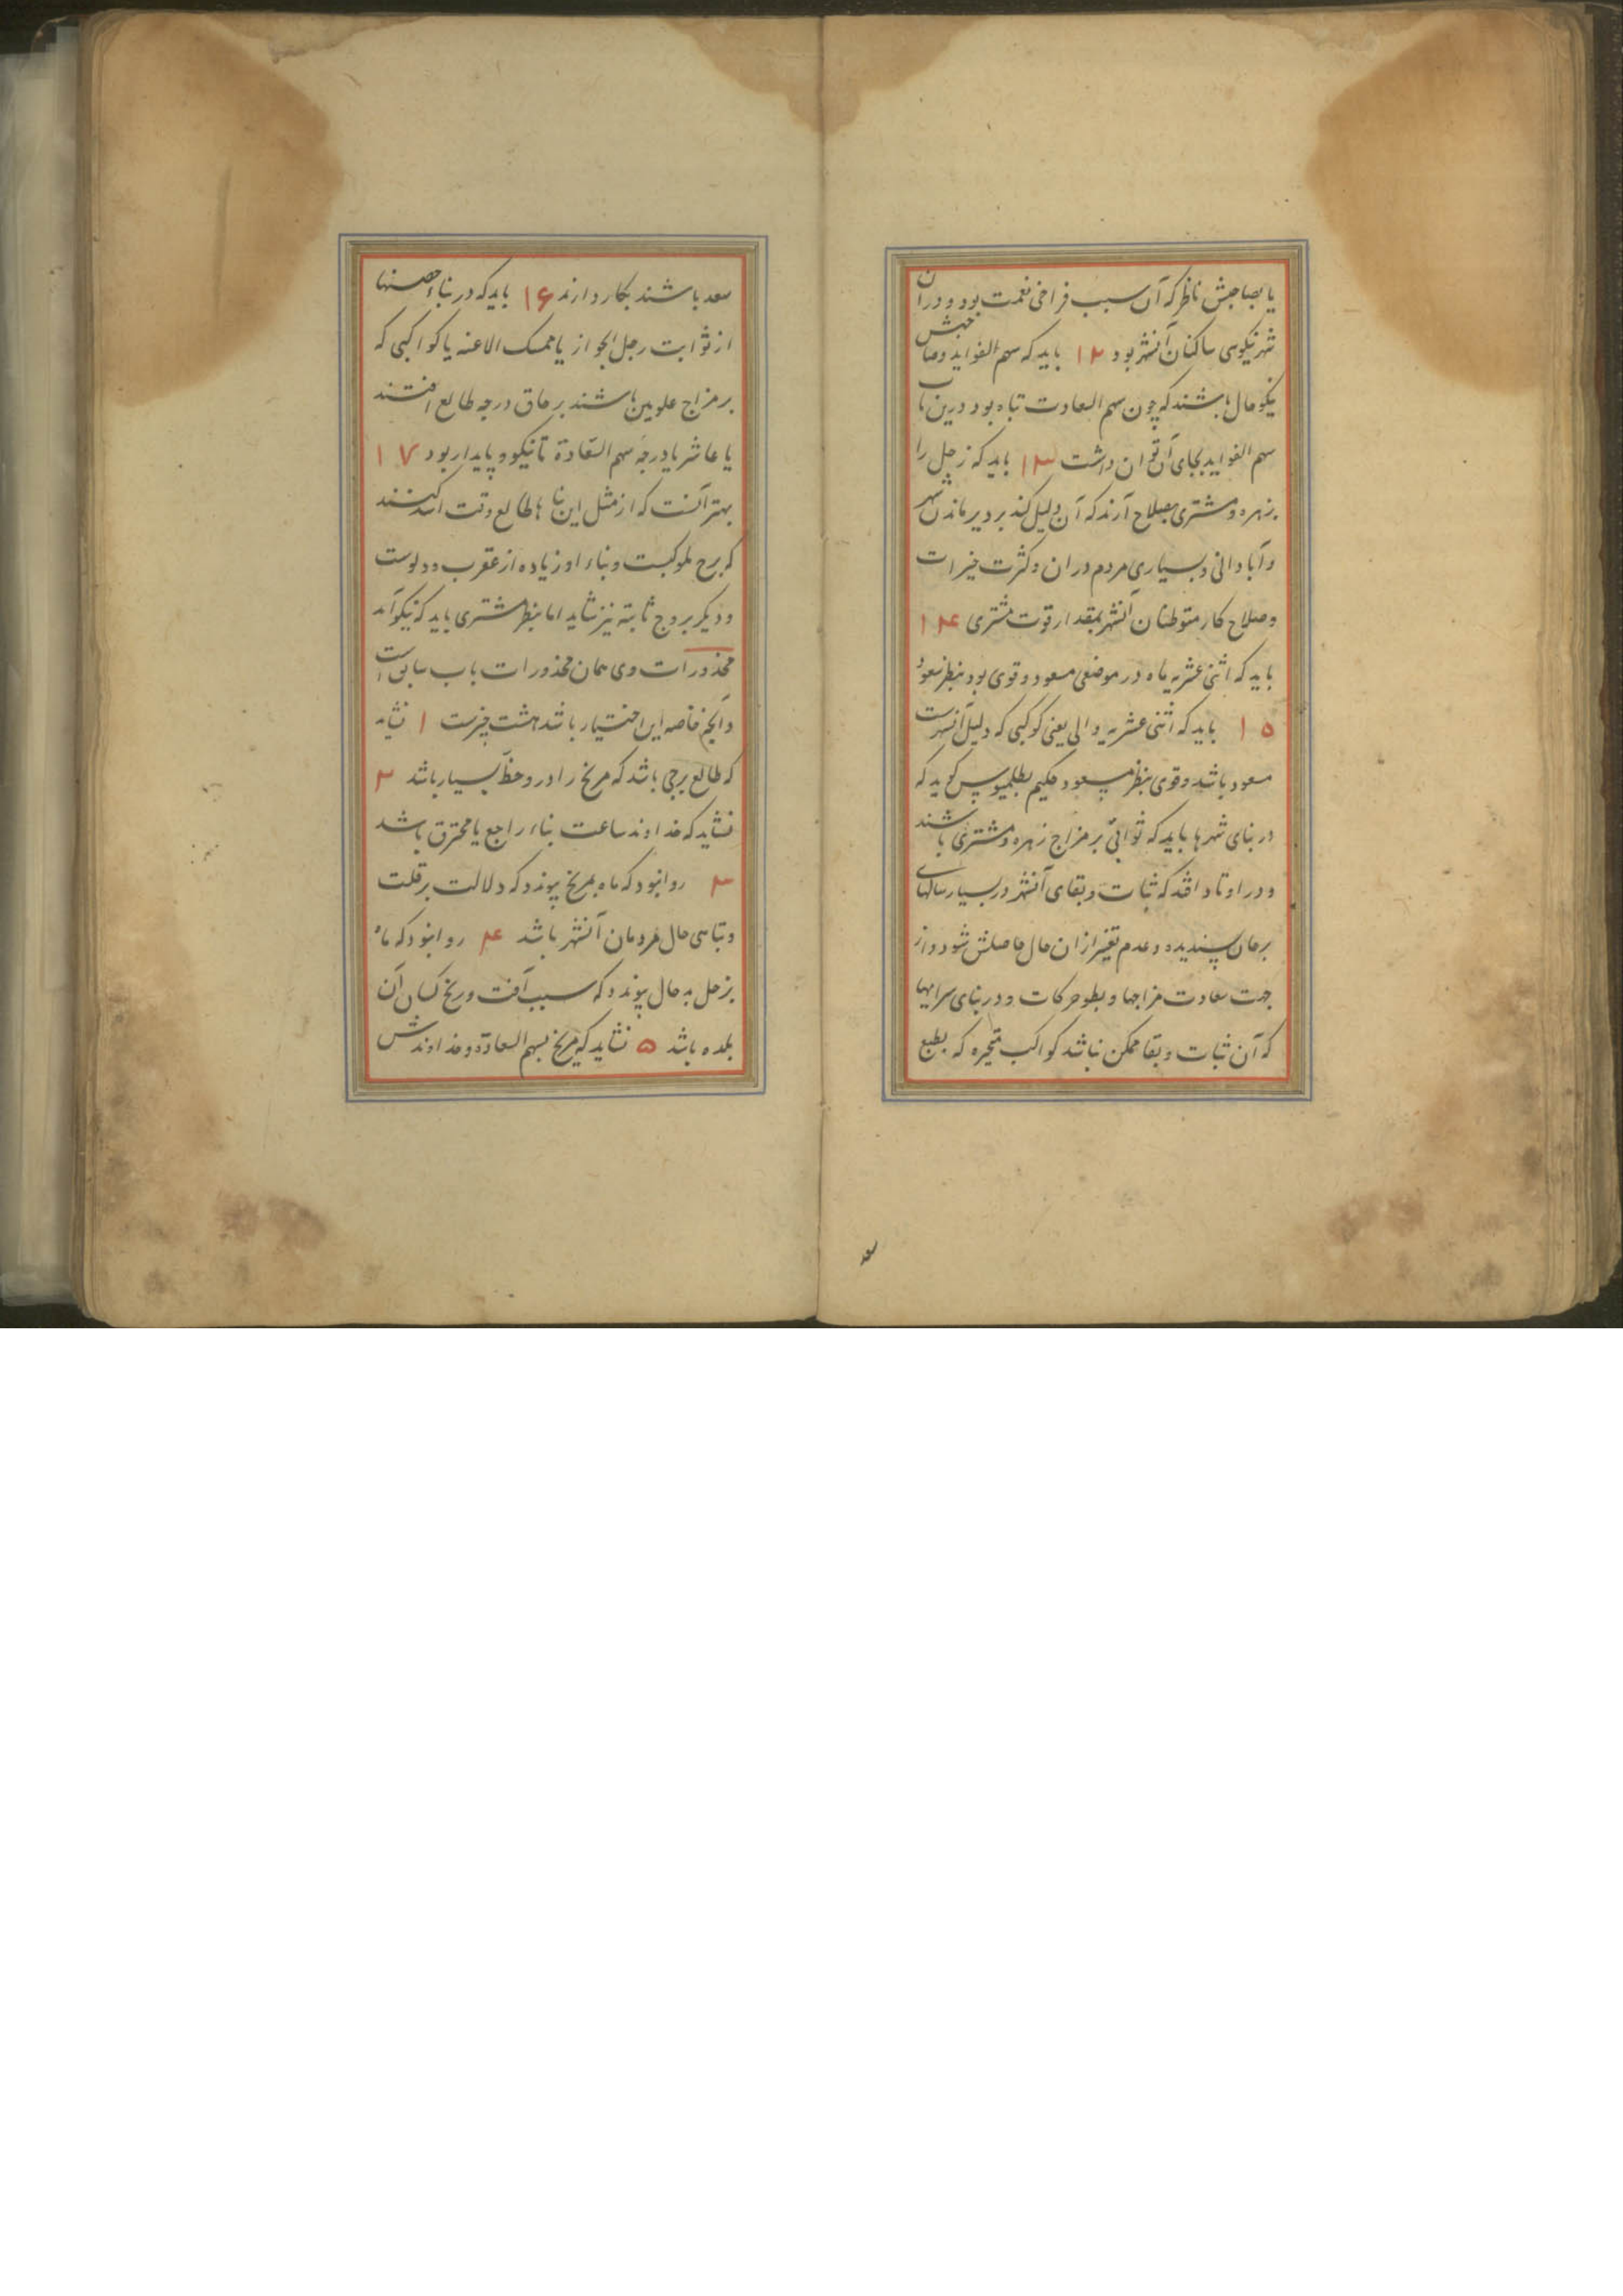 یا بصاحبش ناظر که آن سبب فراخی نعمت بود و دران
شهر نیکوی ساکنان آنشهر بود ۱۲ باید که سهم الفواید وصاحبش
نیکو حال باشند که چون سهم السعادت تباه بود درین باب
سهم الفواید بجای آن توان داشت ۱۳ باید که زحل را
بزهره و مشتری بصلاح آرند که آن دلیل کند بر دیر ماندن شهر
وآبادانی وبسیاری مردم دران وکثرت خیرات
وصلاح کار متوطنان آنشهر بمقدار قوت مشتری ۱۴
باید که اثنی عشریه ماه در موضعی مسعود وقوی بود بنظر سعود
۱۵ باید که اثنی عشریه والی یعنی کوکبی که دلیل آنشهرست
مسعود باشد وقوی بنظر مسعود حکیم بطلمیوس کوید که
در بنای شهرها باید که ثوابتی بر مزاج زهره ومشتری باشند
ودر اوتاد افتد که ثبات وبقای آنشهر در بسیار سالهای
برحال پسندیده وعدم تغییر ازان حال حاصلش شود واز
جهت سعادت مزاجها وبطو حرکات ودر بنای سرایها
که آن ثبات وبقا ممکن نباشد کواکب متحیره که بطبع
سعد باشند بکار دارند ۱۶ باید که در بناء حصنها
از ثوابت رجل الجوزا یا ممسک الاعنه یا کواکبی که
بر مزاج علویین باشند بر حاق درجه طالع افتند
یا عاشر یا درجهٔ سهم السّعادة تا نیکو وپایدار بود ۱۷
بهتر آنست که از مثل این بناها طالع وقت اسد کنند
که برج ملوکیست وبناء او زیاده از عقرب ودلوست
ودیکر بروج ثابته نیز شاید اما بنظر مشتری باید که نیکو آید
محذورات وی همان محذورات باب سابق است
وآنچه خاصه این اختیار باشد هشت چیزست ۱ نشاید
که طالع برجی باشد که مریخ را در و حظّ بسیار باشد ۲
نشاید که خداوند ساعت بناء راجع یا محترق باشد
۳ روا نبود که ماه بمریخ پیوندد که دلالت بر قلت
وتباهی حال مردمان آنشهر باشد ۴ روا نبود که ماه
بزحل بد حال پیوندد که سبب آفت ورنج کسان آن
بلده باشد ۵ نشاید که مریخ بسهم السعادة وخداوندش